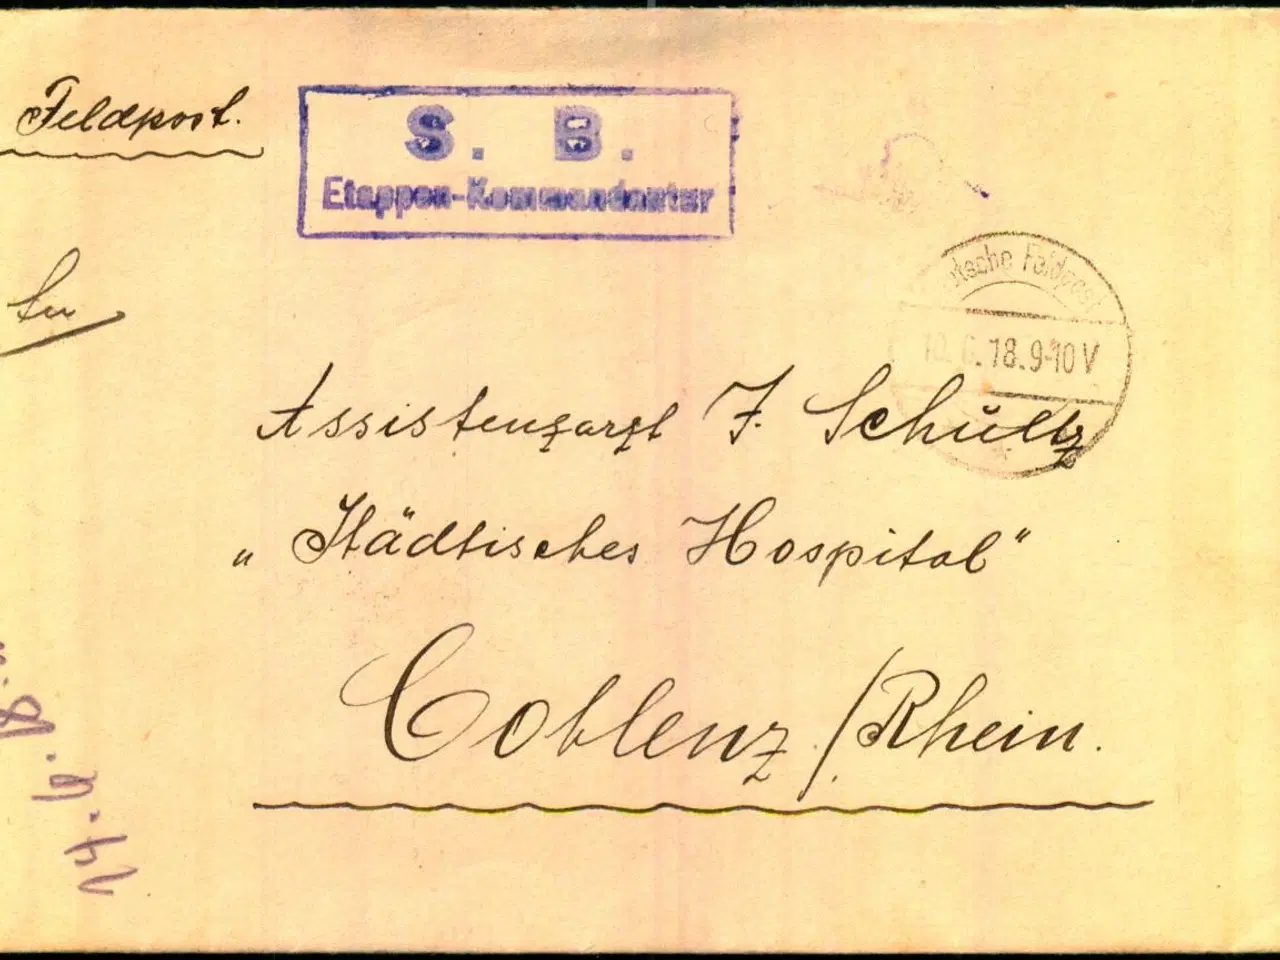 Feldpost.
S. B.
Etappen-Kommandantur
Deutsche Feldpost
10. 6. 18. 9-10 V
An
Assistenzarzt F. Schültz
„Städtisches Hospital"
Coblenz / Rhein.
14. 6. 18.